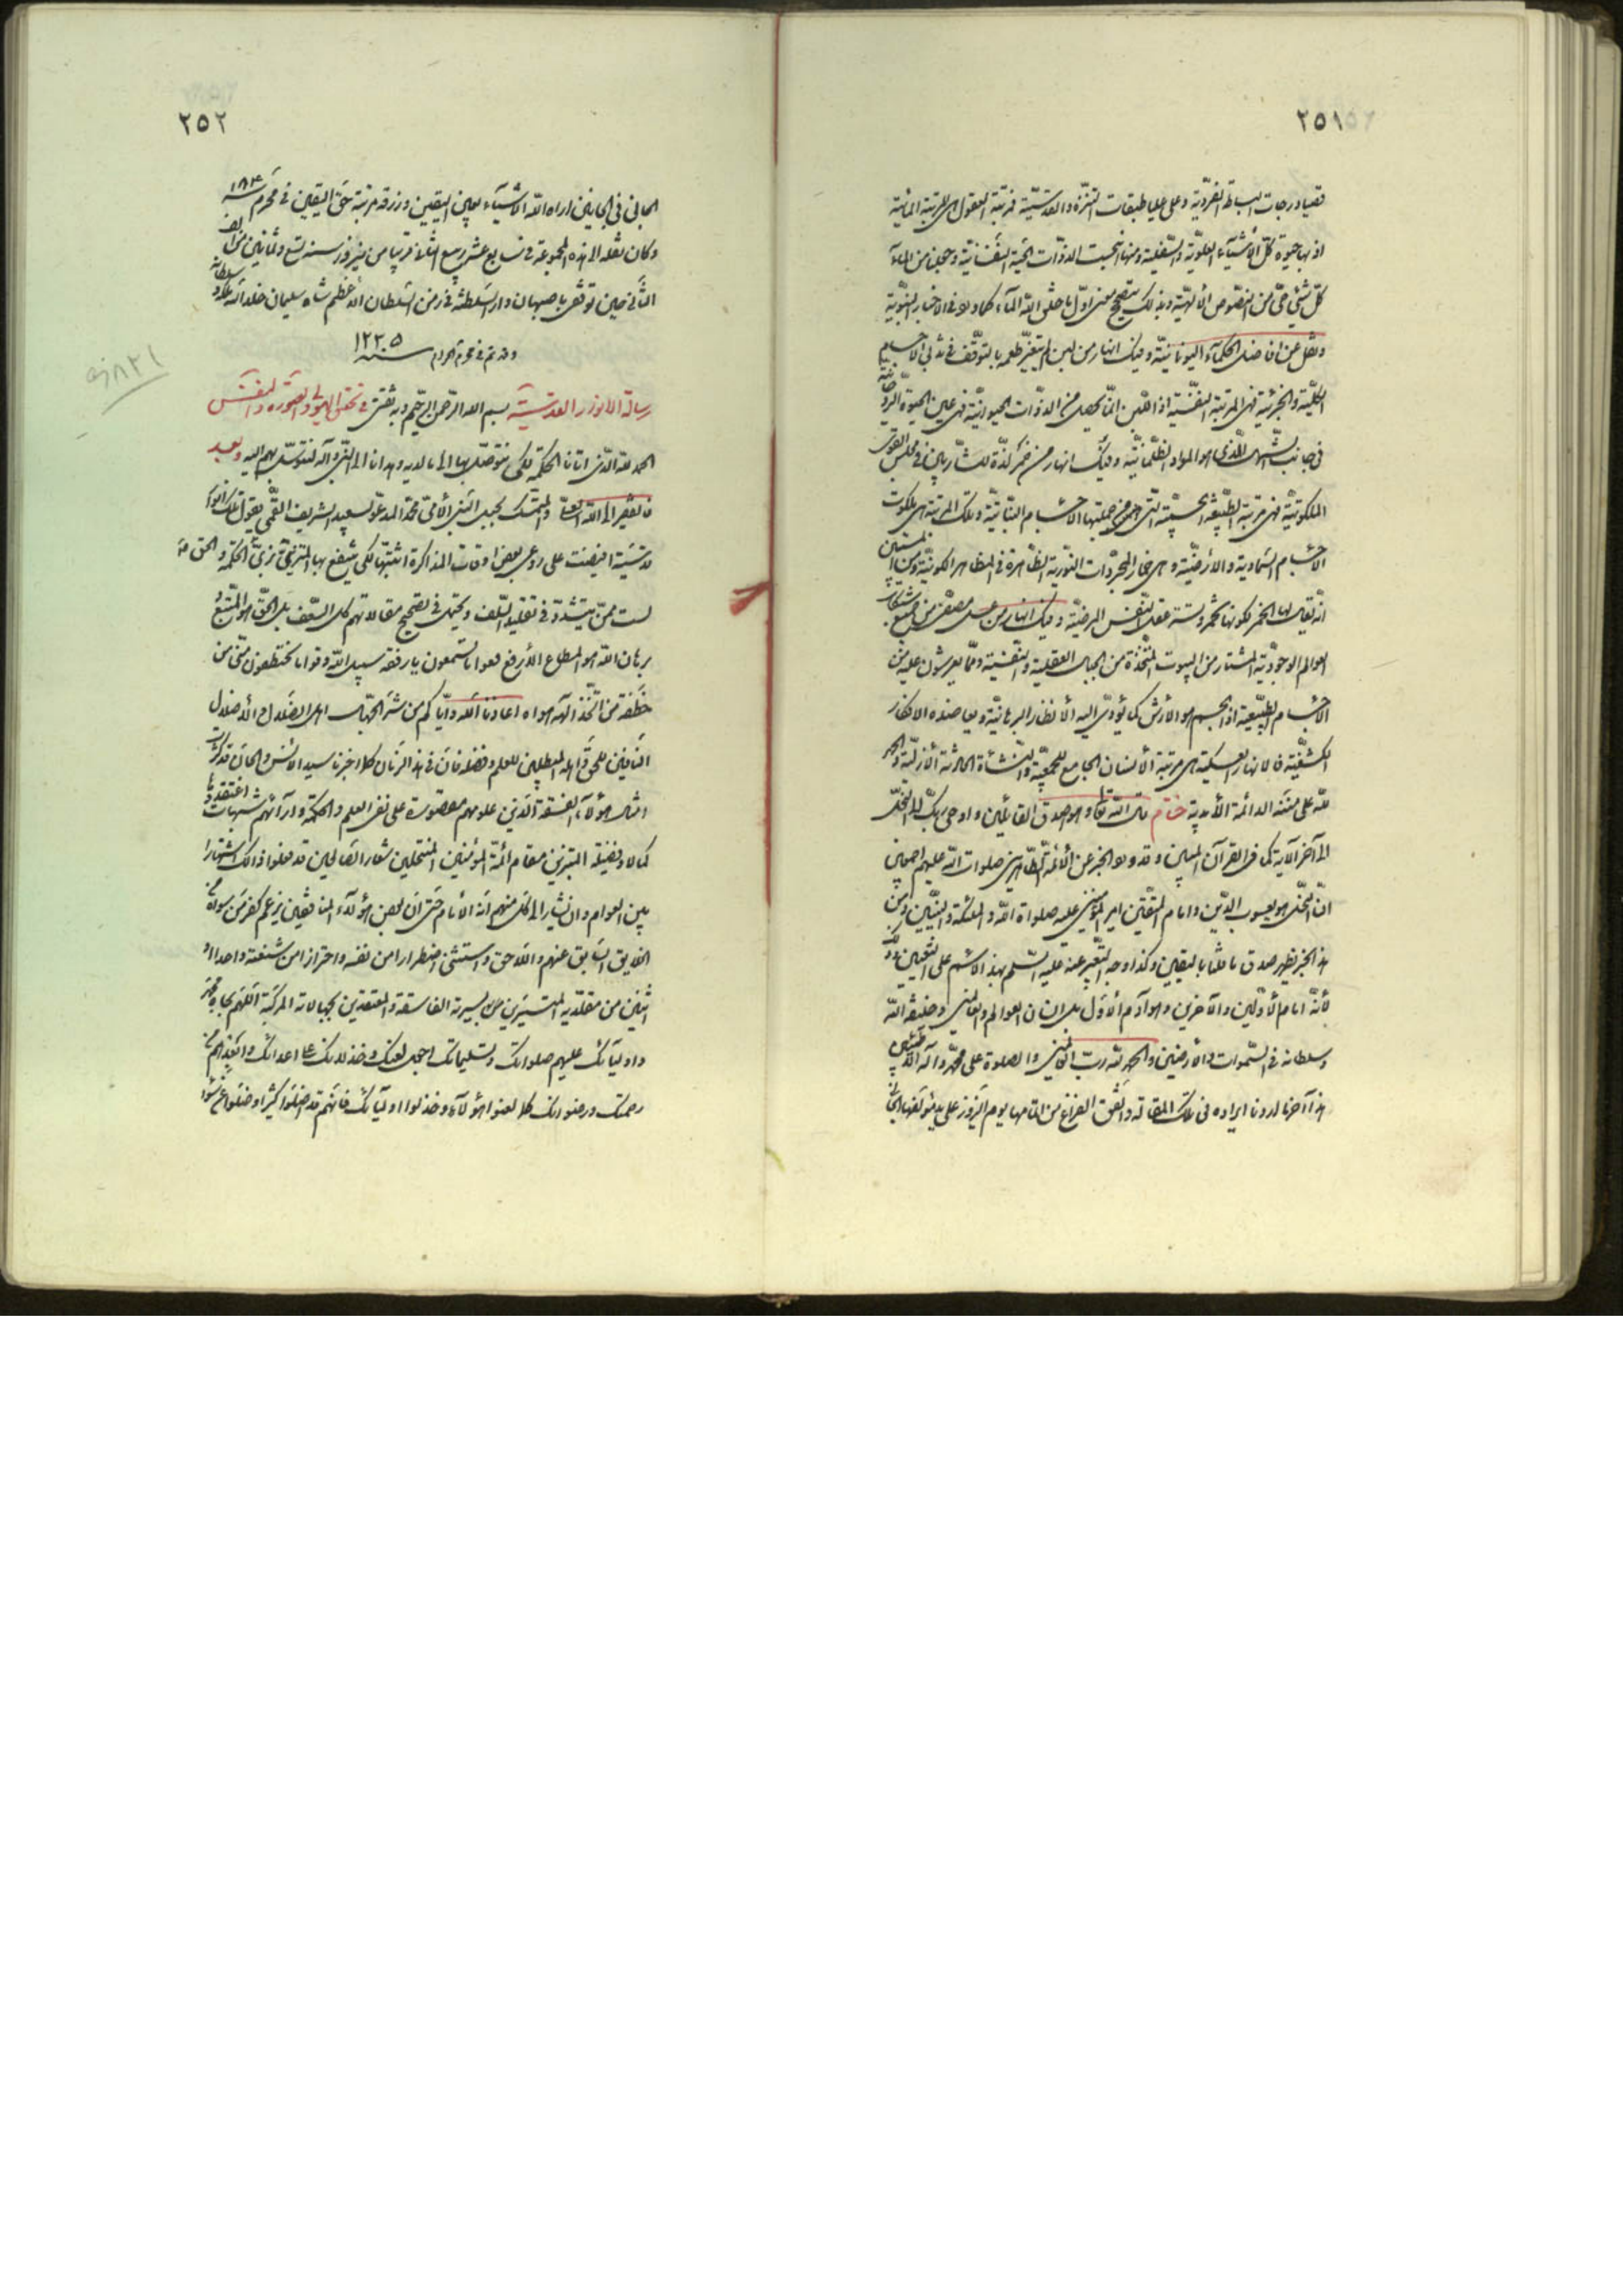 ٢٥١
قصيا درجات البساطة التفردية وعلى عليا طبقات التنزه والقدسية فمرتبة العقول هي المرتبة المائية
اذ بها حيوة كل الأشياء العلوية والسفلية ومنها انبجست الذوات الحية النفسانية وجعلنا من الماء
كل شيء حي من النصوص الألهية وبذلك يتصحح معنى اول ما خلق الله الماء كما ورد في الاخبار النبوية
ونقل عن افاضل الحكماء اليونانية وفيك انهار من لبن لم يتغير طعمه بالتوقف في الاجسام
الكلية والجزئية فهي المرتبة النفسية اذ اللبن انما يحصل من الذوات الحيوانية فهي عين الحيوة
في جانب الذي هو المواد الظلمانية وفيك انهار من خمر لذة للشاربين في مجلس القوى
الملكوتية فهي مرتبة الطبيعة التي من جملتها الاجسام النباتية وتلك المرتبة هي ملكوت
الاجسام السماوية والأرضية وهي المجردات النورية الظاهرة في المظاهر الكونية
انه يقال لها الخمر لكونها عقل النفس المرضية وفيك انهار من عسل مصفى من
العوالم الوجودية المشتار من البيوت المتخذة من الجبال العقلية والنفسية ومما يعرشون عليه من
الاجسام الطبيعية اذ الجسم هو الأرض كما يؤدي اليه الأنظار البرهانية ويعاضده الافكار
الكشفية فالانهار العسلية هي مرتبة الأنسان الجامع للجمعية والنشأة الحادثة الأزلية والحمد
لله على مننه الدائمة الأبدية ختام قال الله تعالى وهو اصدق القائلين واوحى ربك الى النحل
الى آخر الآية كما في القرآن المبين وقد ورد الخبر عن الأئمة الطاهرين صلوات الله عليهم اجمعين
ان النحل هو يعسوب الدين وامام المتقين امير المؤمنين عليه صلواة الله والملئكة والنبيين ومن
هذا الخبر يظهر صدق ما قلنا باليقين وكذا وجه التعبير عنه عليه السلم بهذا الاسم على التعيين وذلك
لأنه امام الأولين والآخرين وهو آدم الأول بل انسان العوالم والعالمين وخليفة الله
وسلطانه في السموات والأرضين والحمد لله رب العالمين والصلوة على محمد وآله الطيبين
هذا آخر ما اردنا ايراده في تلك المقالة واتفق الفراغ من اتمامها يوم النيروز على يد مؤلفها
٢٥٢
الجاني في الجانين اراه الله الأشياء بعين اليقين ورزقه مرتبة حق اليقين في محرم سنة ١٠٨٤
وكان نقله الى هذه المجموعة في سابع عشر ربيع الثاني قريبا من نيروز سنة تسع وثمانين من الالف
الثاني حين توقفي باصبهان دار السلطنة في زمن السلطان الأعظم شاه سليمان خلد الله ملكه وسلطانه
وقد تم في محرم الحرام سنة ١٢٣٥
رسالة الانوار القدسية بسم الله الرحمن الرحيم وبه ثقتي في تحقيق الهيولى والصورة والنفس
الحمد لله الذي اتانا الحكمة لكي نتوصل بها الى ما لديه وهدانا الى النبي وآله لنتوسل بهم اليه وبعد
فالفقير الى الله الغني والمتمسك بحبل النبي الأمي محمد المدعو بسعيد الشريف القمي يقول تلك انوار
قدسية افيضت على روعي بعض اوقات المذاكرة اثبتها لكي ينتفع بها الحكمة والحق
لست ممن يتشدد في تقليد السلف ويجتهد في تصحيح مقالاتهم كل السعف بل الحق هو المتبع و
برهان الله هو المطاع الأرفع فهوا ما تسمعون يا رفقة سبيل الله وقوا ما تختطفون مني من
خطفة من اتخذ الهه هواه اعاذنا الله واياكم من شر الجهال اهل الضلال والأضلال
النافين للحق واهله المبطلين للعلم وفضله فان في هذا الزمان كما اخبرنا سيد الأنس والجان قد كثرت
امثال هؤلاء الفسقة الذين علومهم مقصورة على نفي العلم والحكمة وآرائهم شبهات اعتقدوها
كمالا وفضيلة المتبرزين مقام ائمة المؤمنين المنتحلين شعار الصالحين قد فعلوا ذلك اشتهارا
بين العوام وان يشار الى كل منهم انه الأمام حتى ان بعض هؤلاء المنافقين يزعم كفر من سواه من
الخلايق السابق عنهم واللاحق واستثنى اضطرارا من نفسه واحترازا من شنعته واحدا او
اثنين من مقلديه المتسيرين بسيرته الفاسقة والمعتقدين بجهالاته المركبة اللهم بجاه محمد
واوليائك عليهم صلواتك وتسليماتك اجعل لعنك وخذلانك على اعدائك وابعدهم من
رحمتك ورضوانك كما لعنوا هؤلاء وخذلوا اوليائك فانهم قد اضلوا كثيرا وضلوا عن سواء